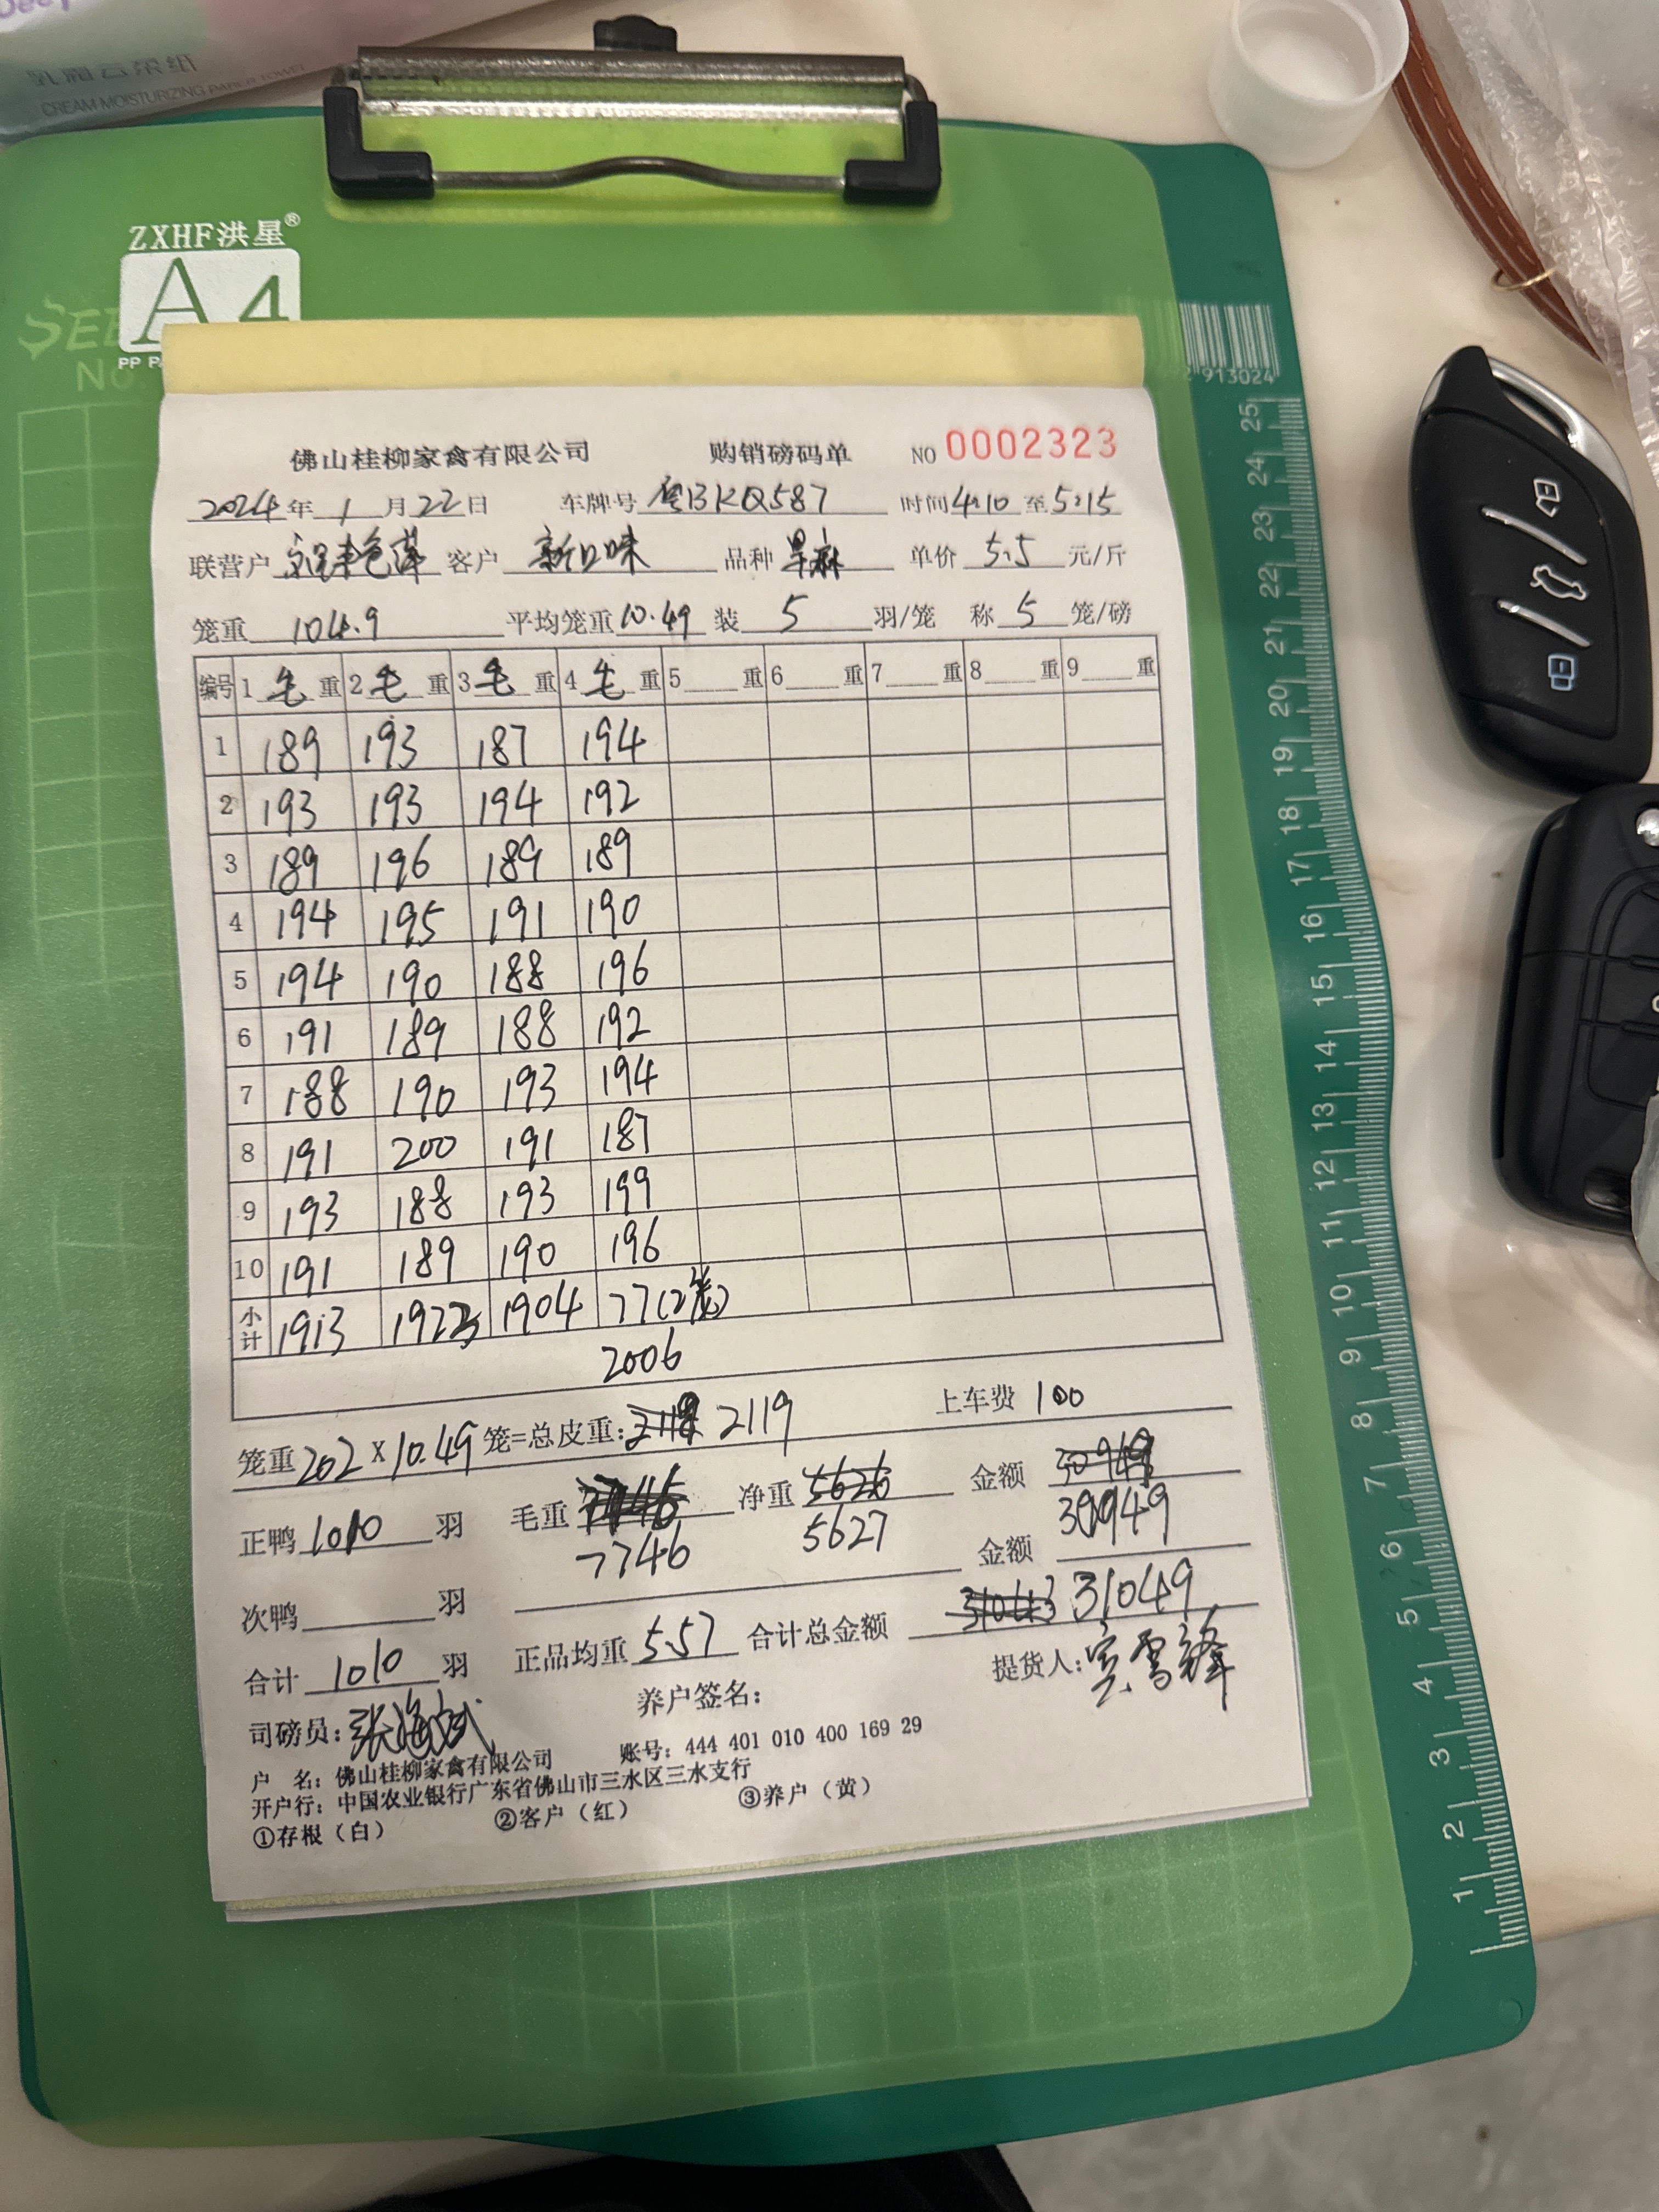 乳霜云柔纸
CREAM MOISTURIZING PAPER TOWEL
ZXHF洪星®
A4
PP
No
913024
佛山桂柳家禽有限公司 购销磅码单 NO 0002323
2024年1月22日 车牌号 粤BKQ587 时间4:10至5:15
联营户 客户 新口味 品种 旱麻 单价 5.5 元/斤
笼重 104.9 平均笼重 10.49 装 5 羽/笼 称 5 笼/磅
编号 1 毛 重 2 毛 重 3 毛 重 4 毛 重 5 重 6 重 7 重 8 重 9 重
1 189 193 187 194
2 193 193 194 192
3 189 196 189 189
4 194 195 191 190
5 194 190 188 196
6 191 189 188 192
7 188 190 193 194
8 191 200 191 187
9 193 188 193 199
10 191 189 190 196
小计 1913 1923 1904 77(2笼)
2006
笼重 202 X 10.49 笼=总皮重: 2119 上车费 100
正鸭 1010 羽 毛重 7746 净重 5626 金额 30949
7746 5627 30949
次鸭 羽 金额
合计 1010 羽 正品均重 5.57 合计总金额 31043 31049
司磅员: 张海斌 养户签名: 提货人:
户 名: 佛山桂柳家禽有限公司 账号: 444 401 010 400 169 29
开户行: 中国农业银行广东省佛山市三水区三水支行
①存根(白) ②客户(红) ③养户(黄)
25
24
23
22
21
20
19
18
17
16
15
14
13
12
11
10
9
8
7
6
5
4
3
2
1